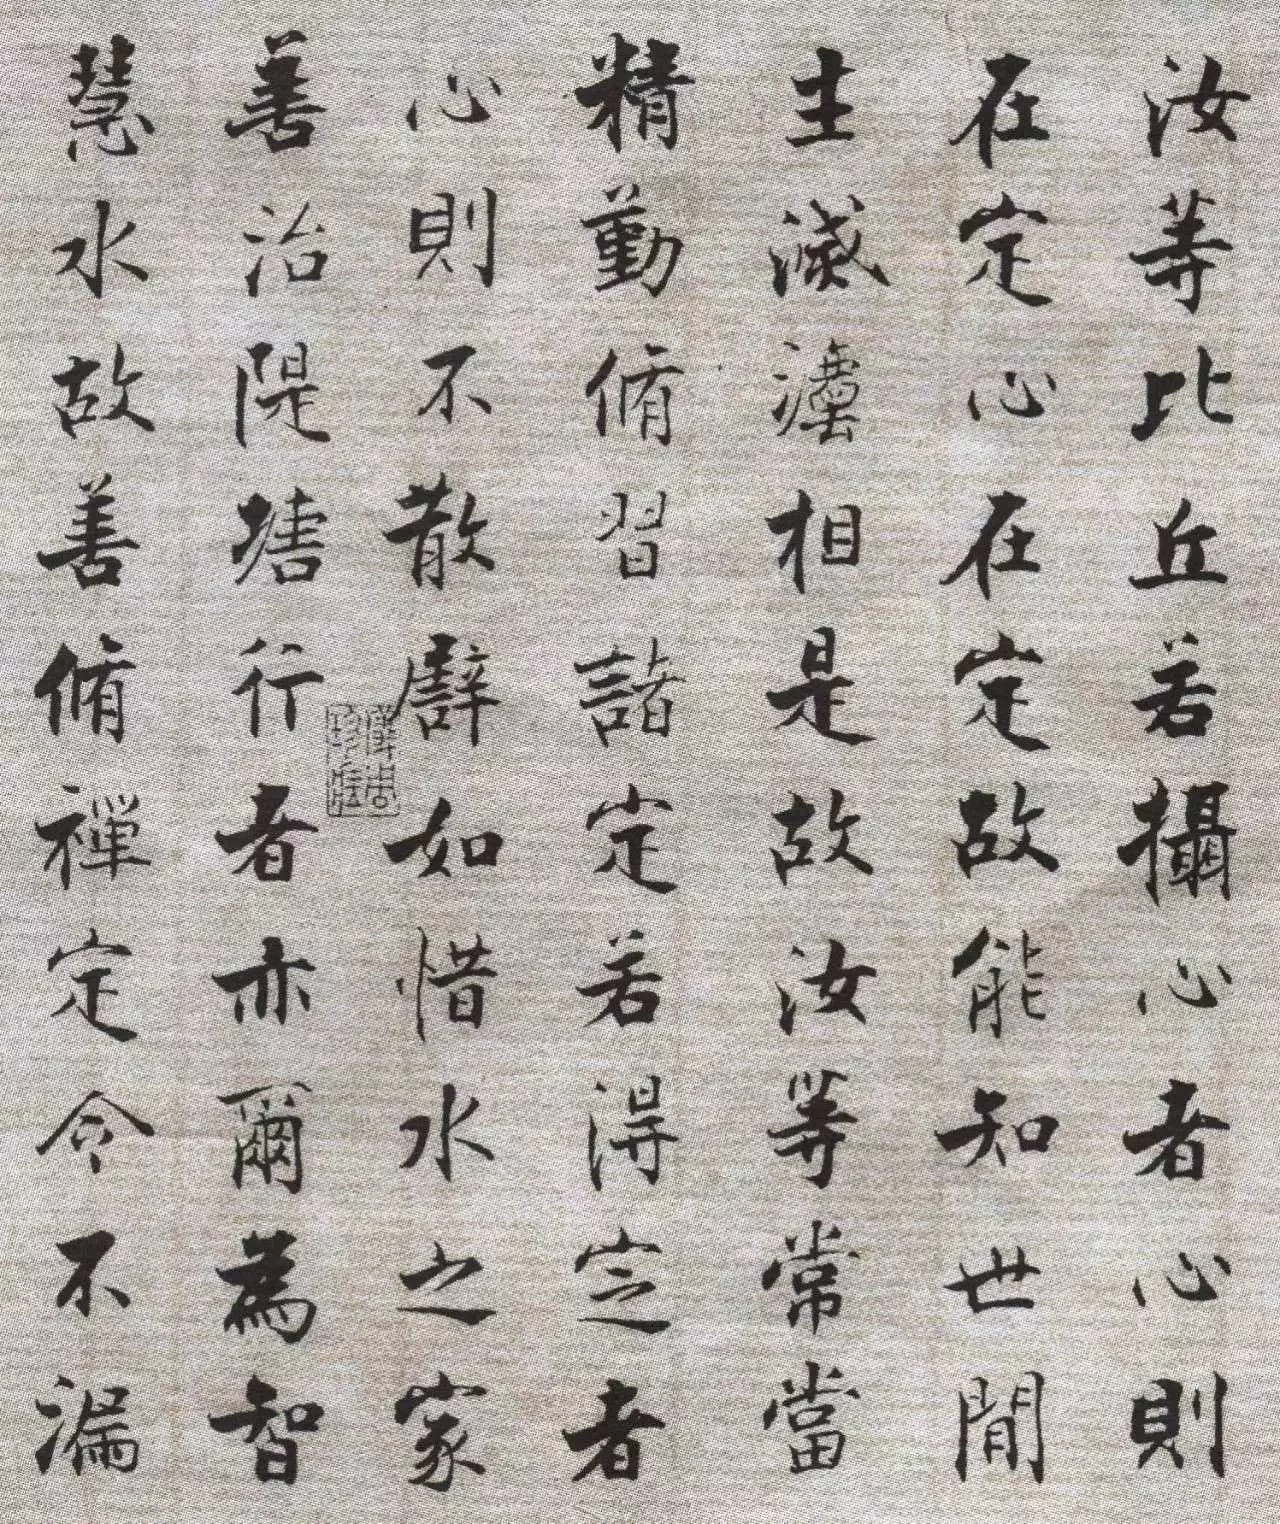 汝等比丘若攝心者心則
在定心在定故能知世閒
生滅灋相是故汝等常當
精勤脩習諸定若得定者
心則不散譬如惜水之家
善治隄塘行者亦爾為智
慧水故善脩禪定令不漏